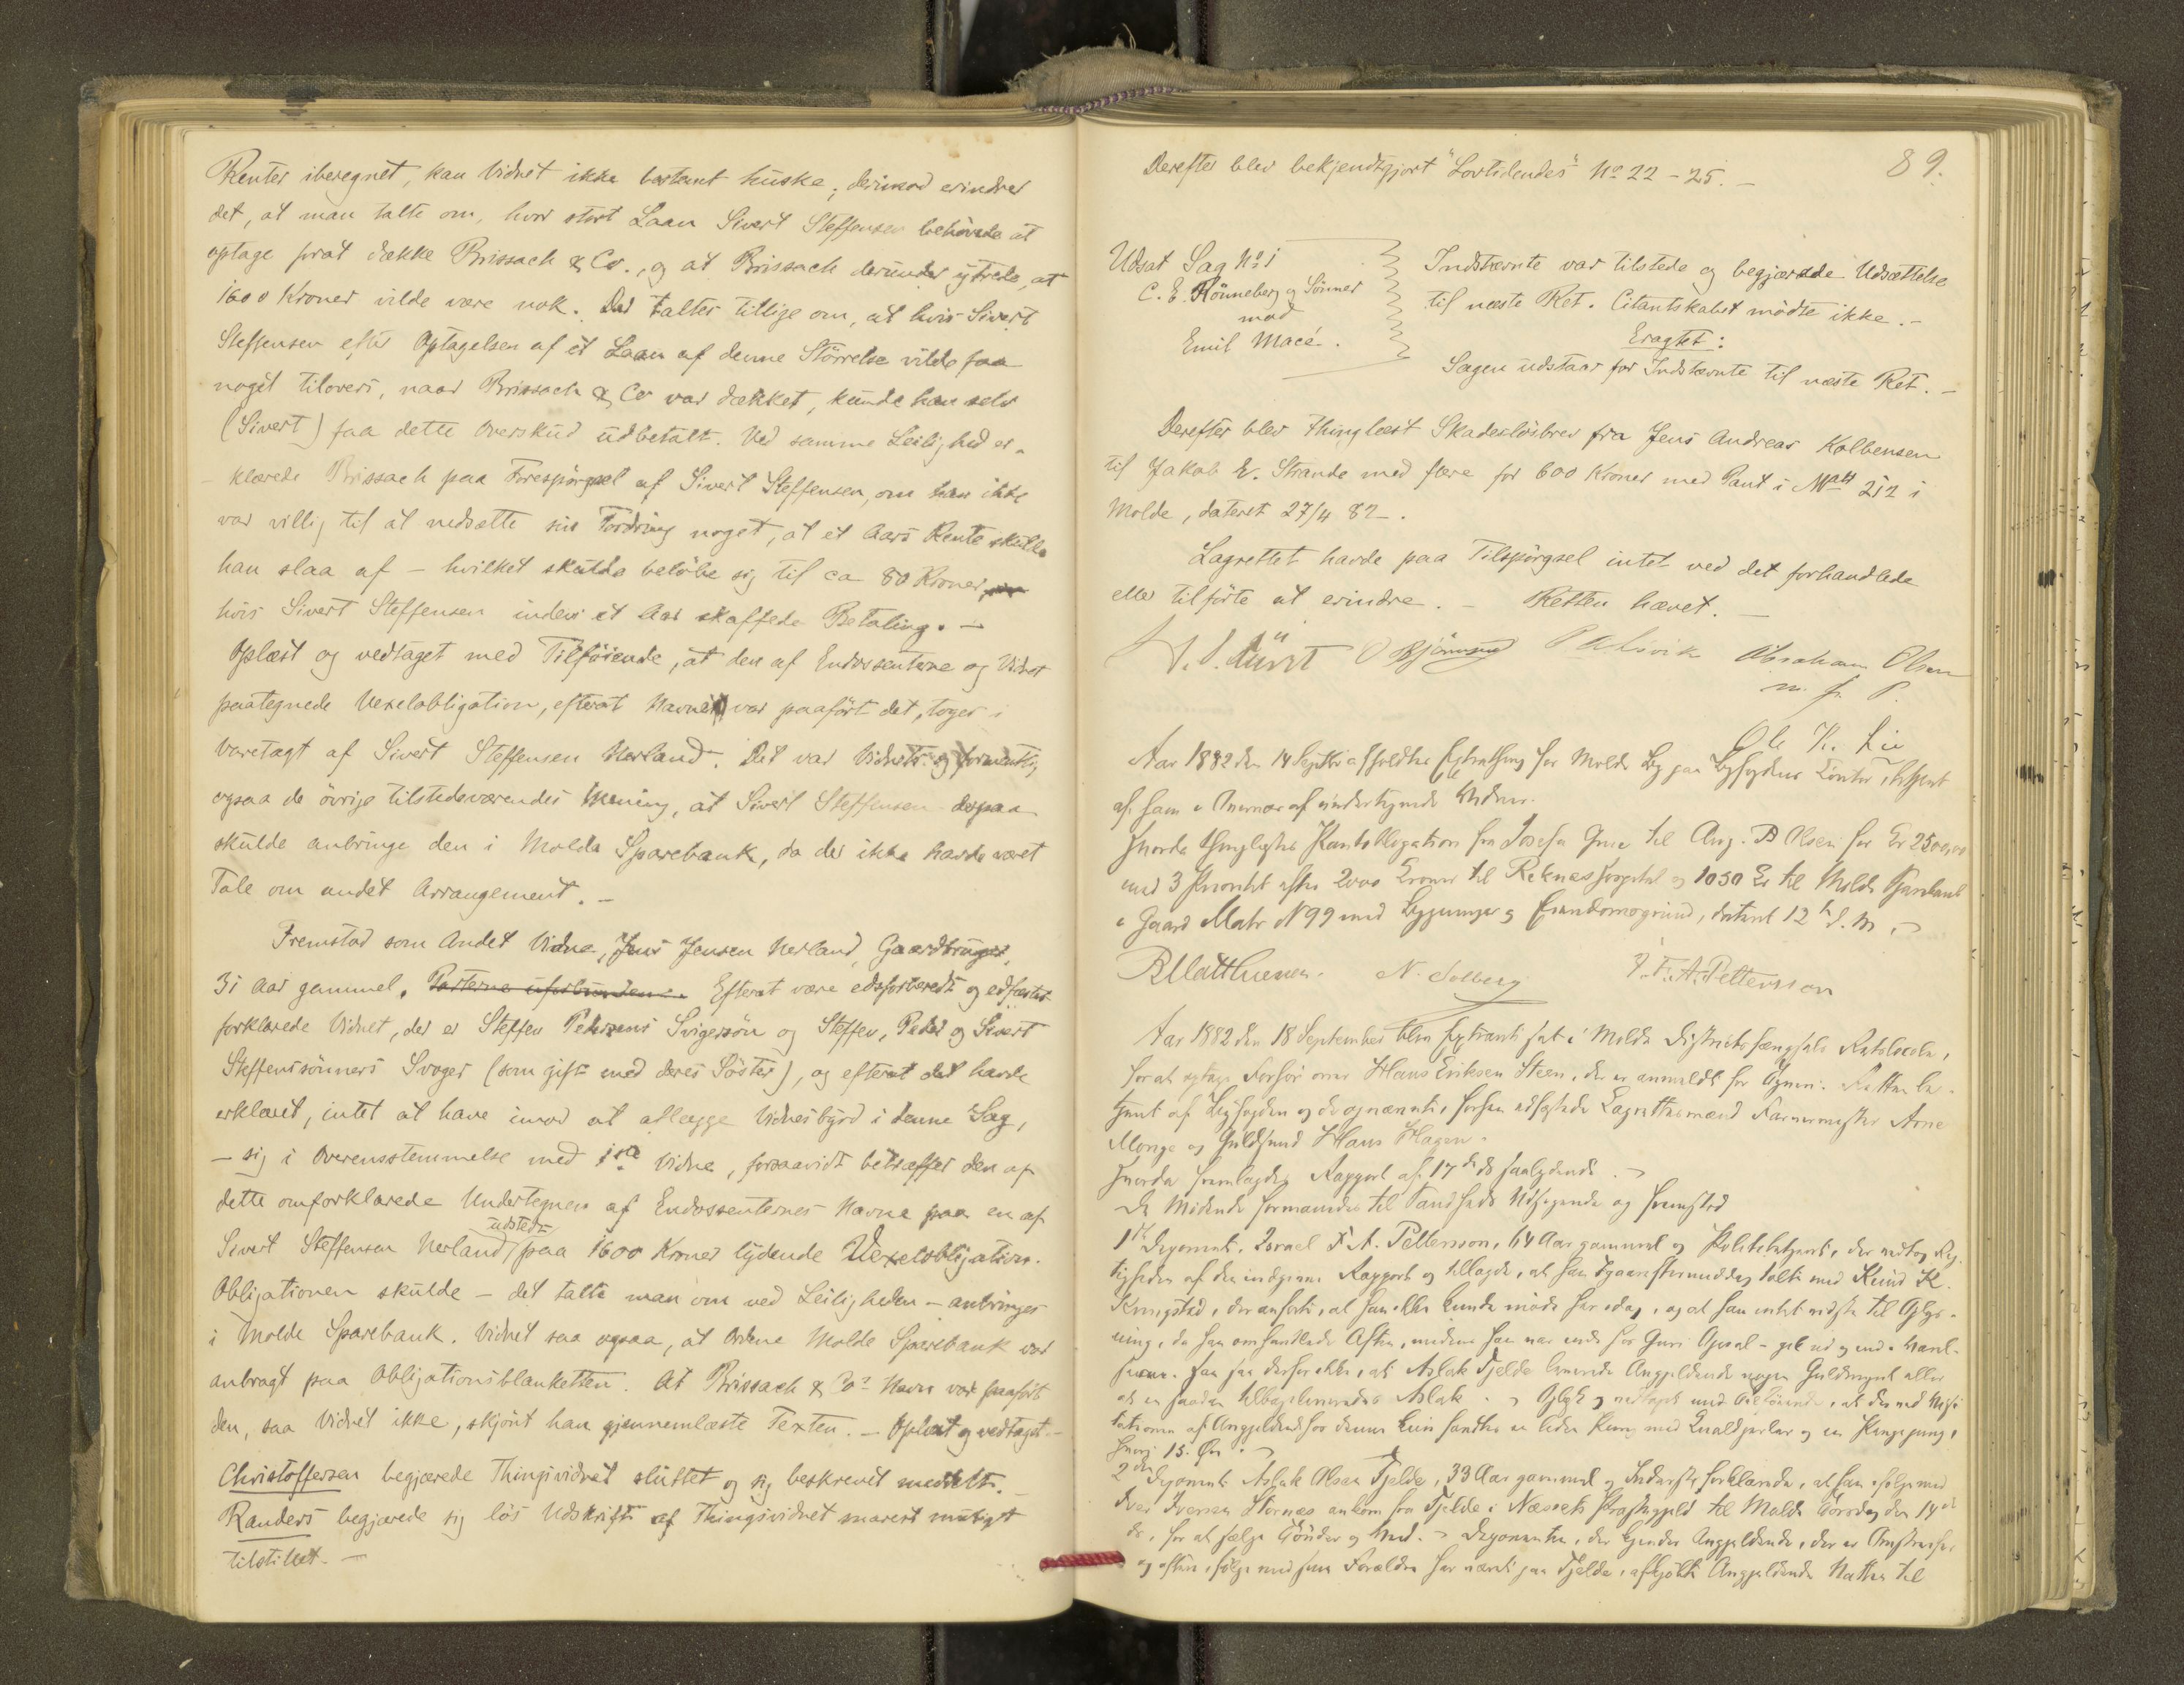 Renter iberegnet, kan Vidnet ikke bestemt huske; derimod erindrer
det, at man talte om, hvor stort Laan Sivert Steffensen behövede at
optage forat dække Brissach & Co., og at Brissach derunder ytrede, at
1600 Kroner vilde være nok. Der taltes tillige om, at hvis Sivert
Steffensen efter Optagelsen af et Laan af denne Störrelse vilde faa
noget tilovers, naar Brissach & Co var dækket, kunde han selv
(Sivert) faa dette Overskud udbetalt. Ved samme Leilighed er-
- klærede Brissach paa Forespörgsel af Sivert Steffensen, om han ikke
var villig til at nedsætte sin Fordring noget, at et Aars Rente skulde
han slaa af - hvilket skulde belöbe sig til ca 80 Kroner,
hvis Sivert Steffensen inden et Aar skaffede Betaling. -
Oplæst og vedtaget med Tilföiende, at den af Endossenterne og Vidnet
paategnede Vexelobligation, efterat Navnet var paafört det, toges i
Varetægt af Sivert Steffensen Herland. Det var Vidnets og formentlig
ogsaa de övrige tilstedeværendes Mening, at Sivert Steffensen derpaa
skulde anbringe den i Molde Sparebank, da der ikke havde været
Tale om andet Arrangement. -
Fremstod som Andet Vidne, Jens Jensen Herland, Gaardbruger,
31 Aar gammel. Parterne uforbunden. Efterat være edsforberedt og edfæstet
forklarede Vidnet, der er Steffen Pedersens Svigersön og Steffen, Peder og Sivert
Steffenssönners Svoger (som gift med deres Söster), og efterat det havde
erklæret, intet at have imod at aflægge Vidnesbyrd i denne Sag,
- sig i Overensstemmelse med 1ste Vidne, forsaavidt betræffer den af
dette omforklarede Undertegnen af Endossenternes Navne paa en af
Sivert Steffensen Herland udstedt paa 1600 Kroner lydende Vexelobligation.
Obligationen skulde - det talte man om ved Leiligheden - anbringes
i Molde Sparebank. Vidnet saa ogsaa, at Ordene Molde Sparebank var
anbragt paa Obligationsblanketten. At Brissach & Cos Navn var paafört
den, saa Vidnet ikke, skjönt han gjennemlæste Texten. - Oplæst og vedtaget -
Christoffersen begjærede Thingsvidnet sluttet og sig beskrevet meddelt. -
Randers begjærede sig lös Udskrift af Thingsvidnet snarest muligt
tilstillet. -
89.
Derefter blev bekjendtgjort "Lovtidendes" No 22 - 25. -
Udsat Sag No 1
C. E. Rönneberg og Sönner
mod
Emil Macé.
Indstævnte var tilstede og begjærede Udsættelse
til næste Ret. Citantskabet mödte ikke. -
Eragtet:
Sagen udstaar for Indstævnte til næste Ret. -
Derefter blev thinglæst Skadeslösbrev fra Jens Andreas Kolbensen
til Jakob E. Strande med flere for 600 Kroner med Pant i Matr 212 i
Molde, dateret 27/4 82. -
Lagrettet havde paa Tilspörgsel intet ved det forhandlede
eller tilförte at erindre. - Retten hævet. -
O Björnsund Abraham Olsen
m. f. P.
Ole K. Lie
Aar 1882 den 14 Septbr afholdtes Extrathing for Molde By paa Byfogdens Contor, betjent
af ham i Nærvær af undertegnede Vidner.
Hvorda thinglæstes Pantobligation fra Josefa Grue til Aug. B Olsen for Kr 2500,00
med 3 Prioritet efter 2000 Kroner til Reknæs Hospital og 1050 Kr til Molde Sparebank
i Gaard Matr N 99 med Bygninger og Eiendomsgrund, dateret 12te d. M.
B Matthiesen. N. Solberg I. F. A. Pettersson
Aar 1882 den 18 September blev Extraret sat i Molde Districtsfængsels Retslocale,
for at optage Forhör over Hans Eriksen Steen, der er anmeldt for Tyveri. Retten be-
tjent af Byfogden og de opnævnte, forhen edfæstede Lagrettesmænd Farvermester Arne
Monge og Guldsmed Hans Hagen.
Hvorda fremlagdes Rapport af 17de ds saalydende.
De Mödende formanedes til Sandheds Udsigende og fremstod
1ste Deponent, Israel F. A. Pettersson, 64 Aar gammel og Politibetjent, der vedtog Rig-
tigheden af den indgivne Rapport og tillagde, at han igaareftermiddag talte med Knud K.
Kringstad, der anförte, at han ikke kunde möde her idag, og at han intet vidste til Oplys-
ning, da han omhandlede Aften, medens han var inde hos Guri Opdøl - gik ud og ind i Værel-
serne. Han saa derfor ikke, at Aslak Tjelde leverede Angjældende nogen Guldmynt eller
at en saadan tilbageleveredes Aslak. Oplæst og vedtaget med Tilföiende, at der ved Visi-
tationen af Angjældende hos denne kun fandtes en liden Pung med Knaldperler og en Pengepung,
hvori 15. Öre.
2den Deponent Aslak Olsen Tjelde, 33 Aar gammel og Inderst, forklarede, at han i Fölge med
Iver Iversen Stornæs ankom fra Tjelde i Næssets Præstegjeld til Molde Torsdag den 14de
ds, for at sælge Tönder og Ved. Deponenten, der kjender Angjældende, der er
og oftere i Fölge med sine Forældre har været paa Tjelde, afkjöbte Angjældende Natten til